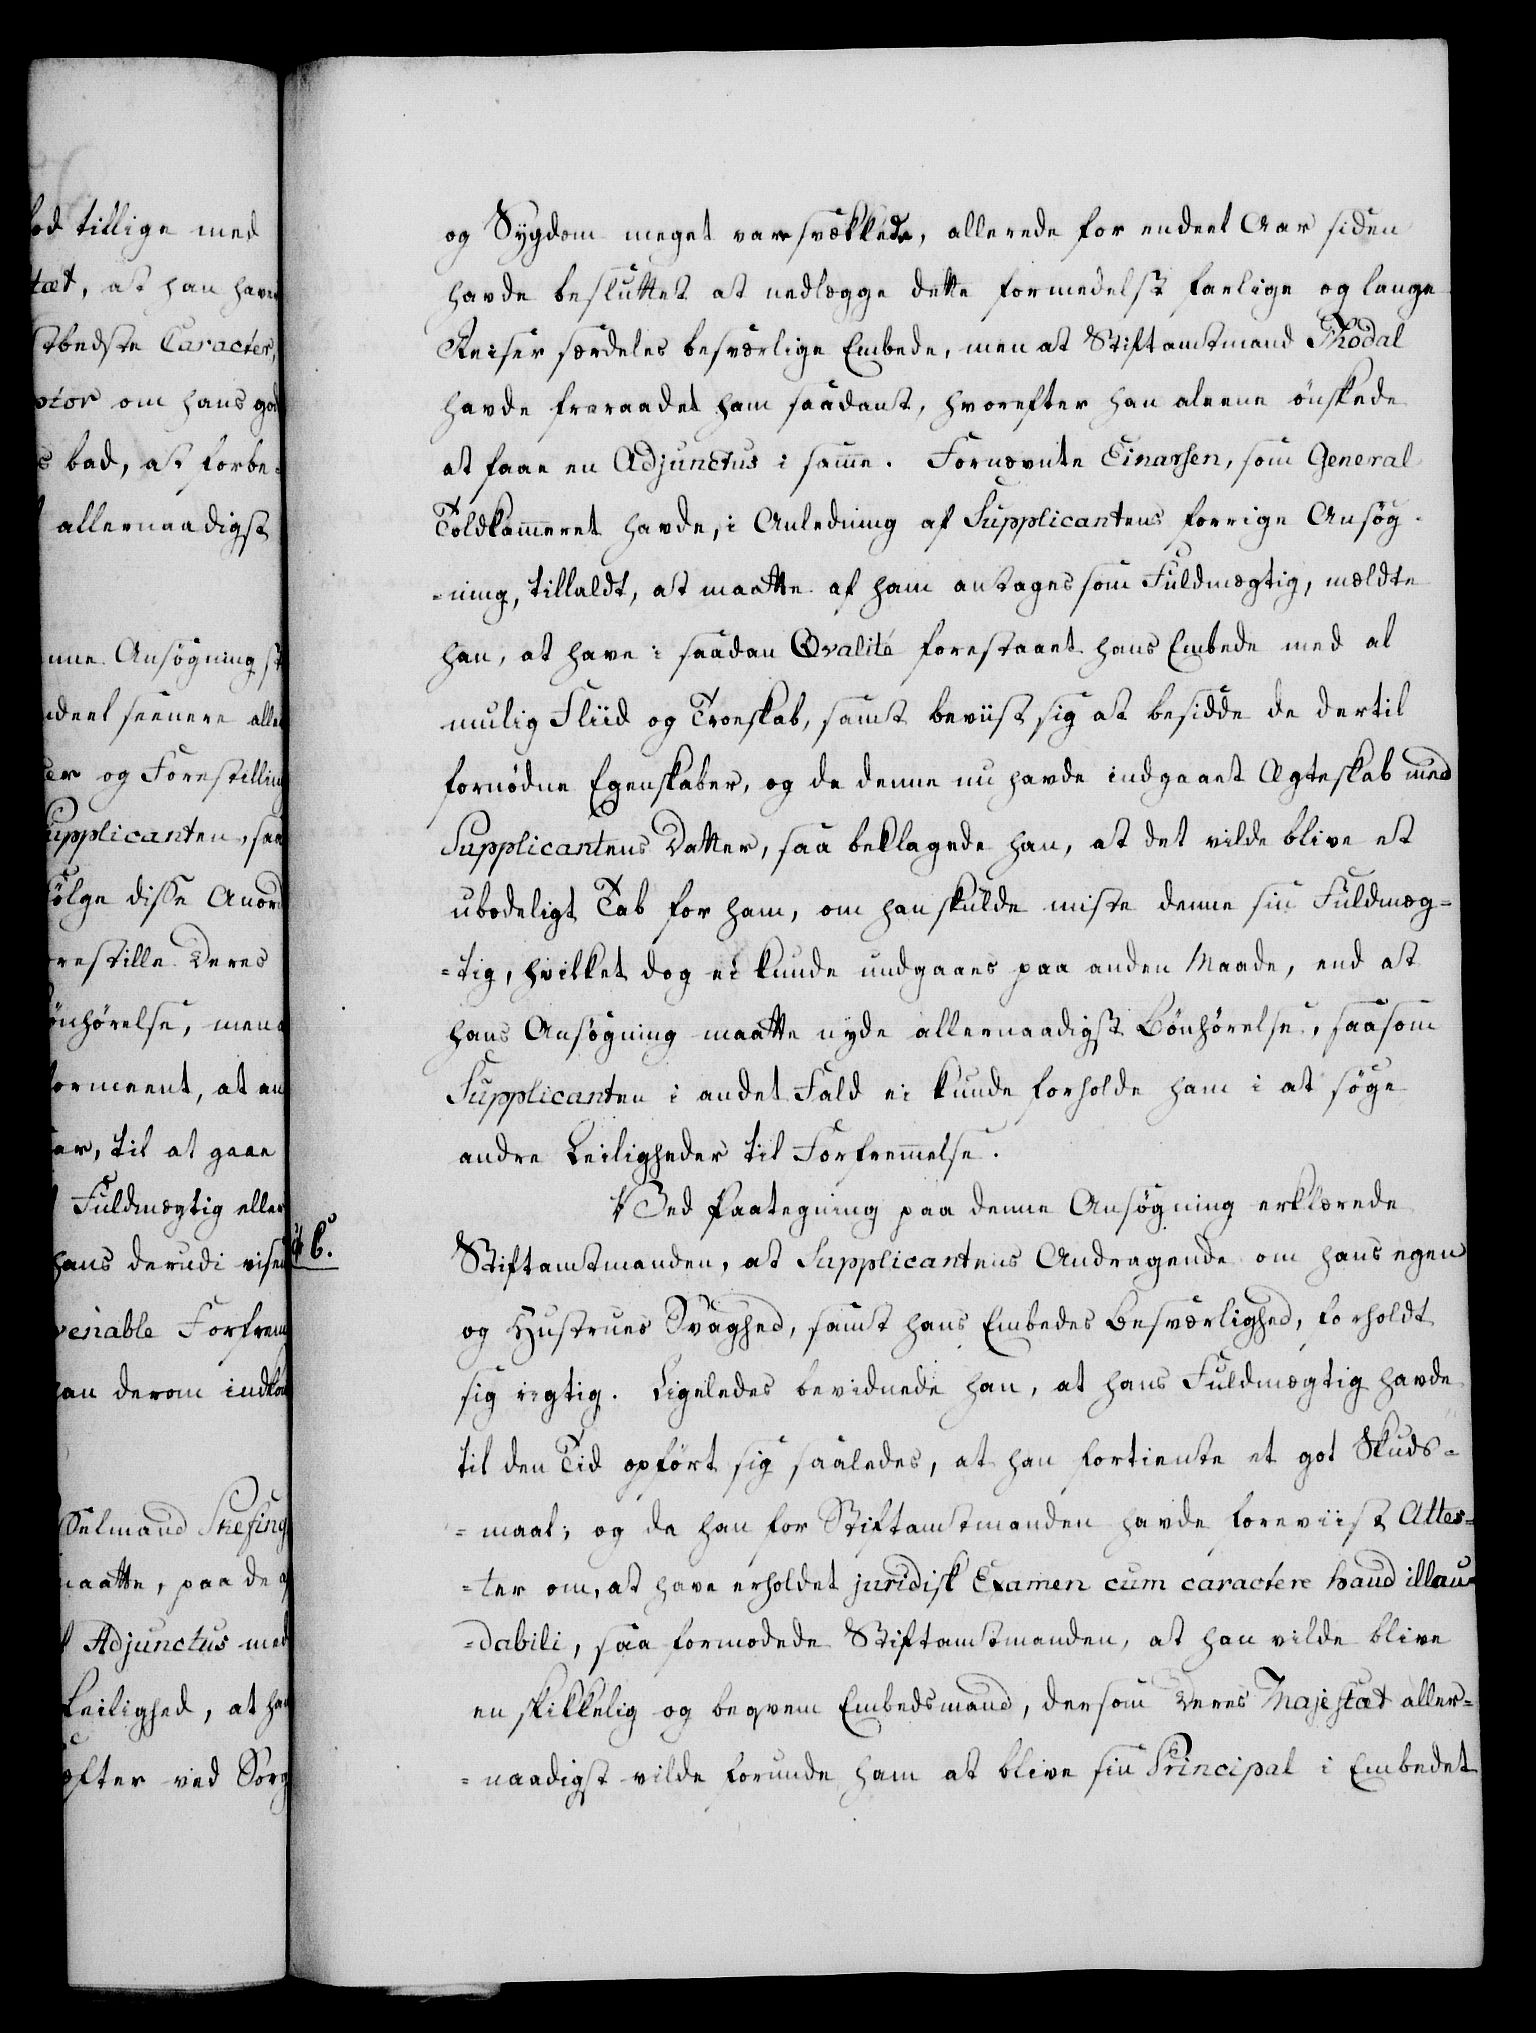 od tillige med
tæt, at han have
stbedste Caracter,
ptor om hans god
s bad, at forbe-
allernaadigst
nne Ansøgning st
ndeel seenere alle
er og Forestilling
upplicanten, saa
følge disse Anord
restille Deres
ønhørelse, mens
formeent, at an
er, til at gaae
Fuldmægtig eller
hans derudi viste
venable Forfrem
han derom indko
Selmand Thefing
maatte, paa de
Adjunctus med
Leilighed, at ha
efter ved Sorg
og Sygdom meget var svækkede, allerede for endeel Aar siden
havde besluttet at nedlægge dette formedelst farlige og lange
Reiser særdeles besværlige Embede, men at Stiftamtmand Thodal
havde fraraadet ham saadant, hvorefter han aleene ønskede
at faae en Adjunctus i samme. Fornævnte Einarsen, som General
Toldkammeret havde, i Anledning af Supplicantens forrige Ansøg-
-ning, tilladt, at maatte af ham antages som Fuldmægtig, mældte
han, at have i saadan Qvalité forestaaet hans Embede med al
mulig Fliid og Troeskab, samt beviist sig at besidde de dertil
fornødne Egenskaber, og da denne nu havde indgaaet Ægteskab med
Supplicantens Datter, saa beklagede han, at det vilde blive et
ubodeligt Tab for ham, om han skulde miste denne sin Fuldmæg=
=tig, hvilket dog ei kunde undgaaes paa anden Maade, end at
hans Ansøgning maatte nyde allernaadigst Bønhørelse, saasom
Supplicanten i andet Fald ei kunde forholde ham i at søge
andre Leiligheder til Forfremmelse.
Ved Paategning paa denne Ansøgning erklærede
b.
Stiftamtmanden, at Supplicantens Andragende om hans egen
og Hustrues Svaghed, samt hans Embedes Besværlighed, forholdt
sig rigtig. Ligeledes bevidnede han, at hans Fuldmægtig havde
til den Tid opført sig saaledes, at han fortiente et got Skuds=
=maal; og da han for Stiftamtmanden havde foreviist Attes=
=ter om, at have erholdet juridisk Examen cum caractere haud illau=
=dabili, saa formodede Stiftamtmanden, at han vilde blive
en skikkelig og beqvem Embedsmand, dersom Deres Majestæt aller=
=naadigst vilde forunde ham at blive sin Principal i Embedet